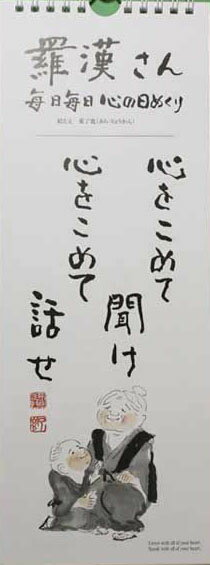 羅漢さん
毎日毎日 心の日めくり
心をこめて
聞け
心をこめて
話せ
Listen with all of your heart.
Speak with all of your heart.